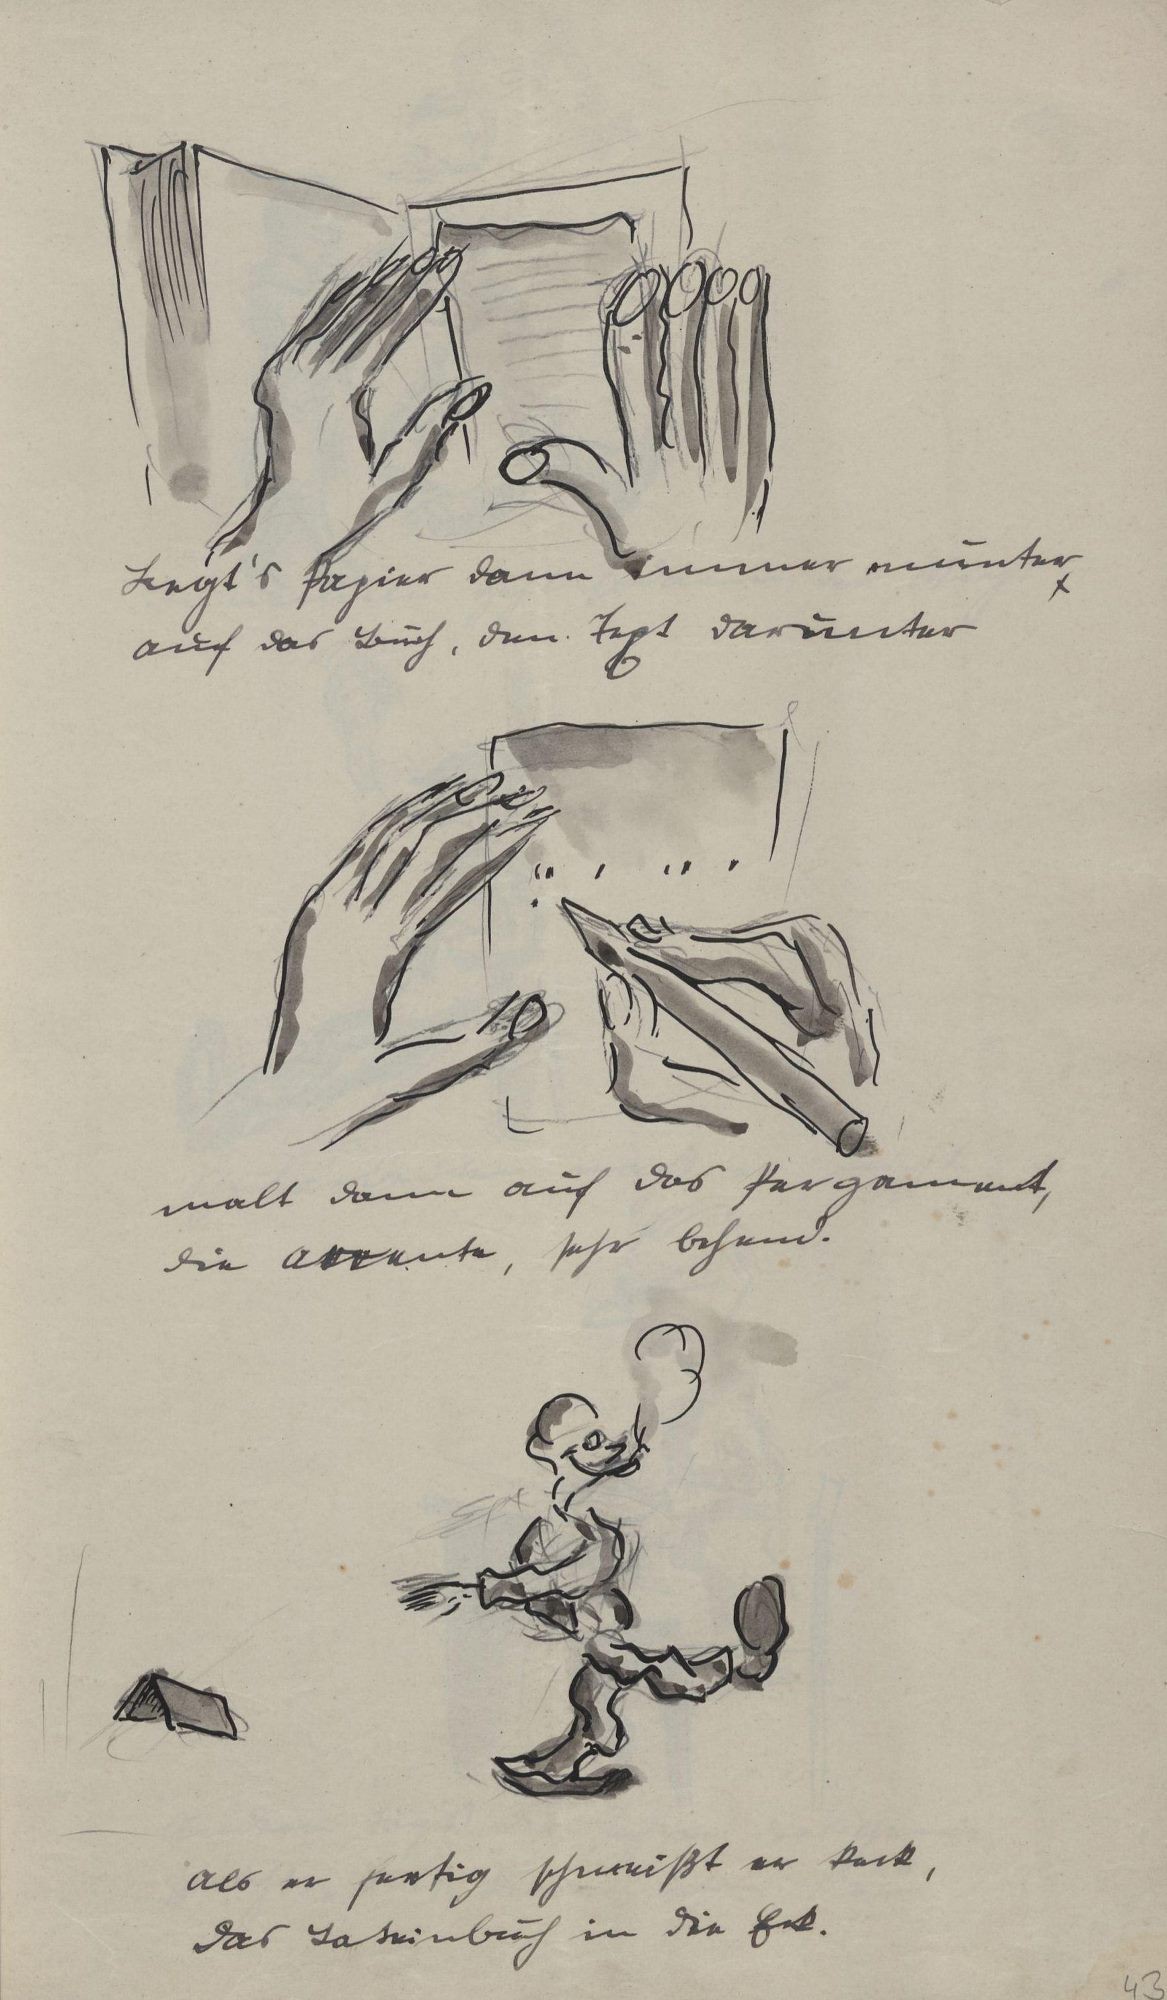 Legt's Papier dann immer munter,
auf das Buch, den Text darunter
malt dann auf das Pergament,
die Akkente, sehr behend.
Als er fertig schmeißt er keck,
Das Lateinbuch in die Eck.
43